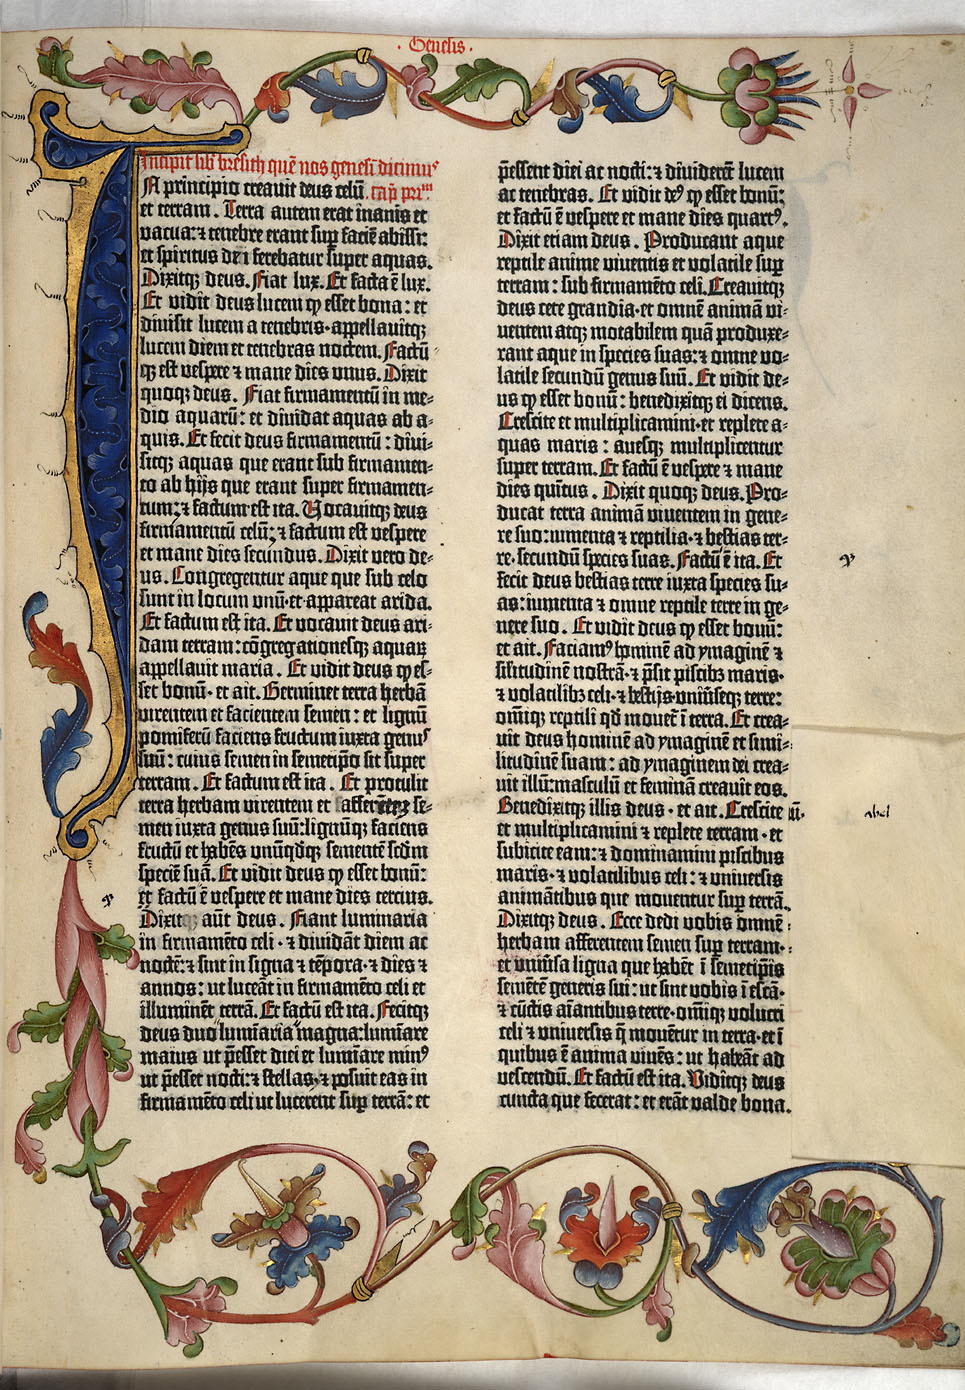 Genesis
Incipit lib̄ bresith quē nos genesī dicimus
In principio creauit deus celū . cap̄ pr̄m
et terram . Terra autem erat inanis et
vacua: ⁊ tenebre erant sup̄ faciē abissi:
et spiritus dn̄i ferebatur super aquas.
Dixitqꝫ deus. Fiat lux. Et facta ē lux.
Et vidit deus lucem ꝙ esset bona: et
diuisit lucem a tenebris · appellauitqꝫ
lucem diem et tenebras noctem. Factū
qꝫ est vespere ⁊ mane dies vnus. Dixit
quoqꝫ deus. Fiat firmamentū in me-
dio aquarū: et diuidat aquas ab a-
quis. Et fecit deus firmamentū: diui-
sitqꝫ aquas que erant sub firmamen-
to ab hijs que erant super firmamen-
tum: ⁊ factum est ita. Vocauitqꝫ deus
firmamentū celū: ⁊ factum est vespere
et mane dies secundus. Dixit vero de-
us. Congregentur aque que sub celo
sunt in locum vnū · et · appareat arida.
Et factum est ita. Et vocauit deus ari-
dam terram: cōgregationesqꝫ aquaꝝ
appellauit maria . Et vidit deus ꝙ es-
set bonū · et ait. Germinet terra herbā
virentem et facientem semen: et lignū
pomiferū faciens fructum iuxta genus
suū: cuius semen in semetip̄o sit super
terram . Et factum est ita . Et protulit
terra herbam virentem et se-
men iuxta genus suū: lignūqꝫ faciens
fructū et habēs vnūqd̄qꝫ sementē scd̄m
speciē suā. Et vidit deus ꝙ esset bonū:
et factū ē vespere et mane dies tercius.
Dixitqꝫ aūt deus . Fiant luminaria
in firmamēto celi · ⁊ diuidāt diem ac
noctē: ⁊ sint in signa ⁊ tēpora · ⁊ dies ⁊
annos: ut luceāt in firmamēto celi et
illuminēt terrā. Et factū est ita. Fecitqꝫ
deus duo lumīaria magna: lumīare
maius ut p̄esset diei et lumīare minꝰ
ut p̄esset nocti: ⁊ stellas · ⁊ posuit eas in
firmamēto celi ut lucerent sup̄ terrā: et
p̄essent diei ac nocti: ⁊ diuiderēt lucem
ac tenebras. Et vidit deꝰ ꝙ esset bonū:
et factū ē vespere et mane dies quartꝰ.
Dixit etiam deus . Producant aque
reptile anime viuentis et volatile sup̄
terram: sub firmamēto celi. Creauitqꝫ
deus cete grandia · et omnē animā vi-
uentem atqꝫ motabilem quā produxe-
rant aque in species suas: ⁊ omne vo-
latile secundū genus suū. Et vidit de-
us ꝙ esset bonū: benedixitqꝫ ei dicens.
Crescite et multiplicamini · et replete a-
quas maris: auesqꝫ multiplicentur
super terram. Et factū ē vespere ⁊ mane
dies quītus . Dixit quoqꝫ deus. Pro-
ducat terra animā viuentem in gene-
re suo: iumenta ⁊ reptilia · ⁊ bestias ter-
re · secundū species suas. Factū ē ita. Et
fecit deus bestias terre iuxta species su-
as: iumenta ⁊ omne reptile terre in ge-
nere suo . Et vidit deus ꝙ esset bonū:
et ait. Faciamꝰ hominē ad ymaginē ⁊
sil̄itudinē nostrā · ⁊ p̄sit piscibꝫ maris ·
⁊ volatilibꝫ celi · ⁊ bestijs vniūseqꝫ terre:
om̄iqꝫ reptili qd̄ mouet̄ ī terra. Et crea-
uit deus hominē ad ymaginē et simi-
litudinē suam: ad ymaginem dei crea-
uit illū: masculū et feminā creauit eos.
Benedixitqꝫ illis deus · et ait. Crescite
et multiplicamini ⁊ replete terram · et
subicite eam: ⁊ dominamini piscibus
maris · ⁊ volatilibus celi: ⁊ vniuersis
animātibus que mouentur sup̄ terrā.
Dixitqꝫ deus . Ecce dedi vobis omnē
herbam afferentem semen sup̄ terram ·
et vniūsa ligna que habēt ī semetip̄is
semētē generis sui: ut sint vobis ī escā ·
⁊ cūctis aīantibus terre · om̄iqꝫ volucri
celi ⁊ vniuersis q̄ mouētur in terra · et ī
quibus ē anima viuēs: ut habeāt ad
vescendū. Et factū est ita. Viditqꝫ deus
cuncta que fecerat: et erāt valde bona.